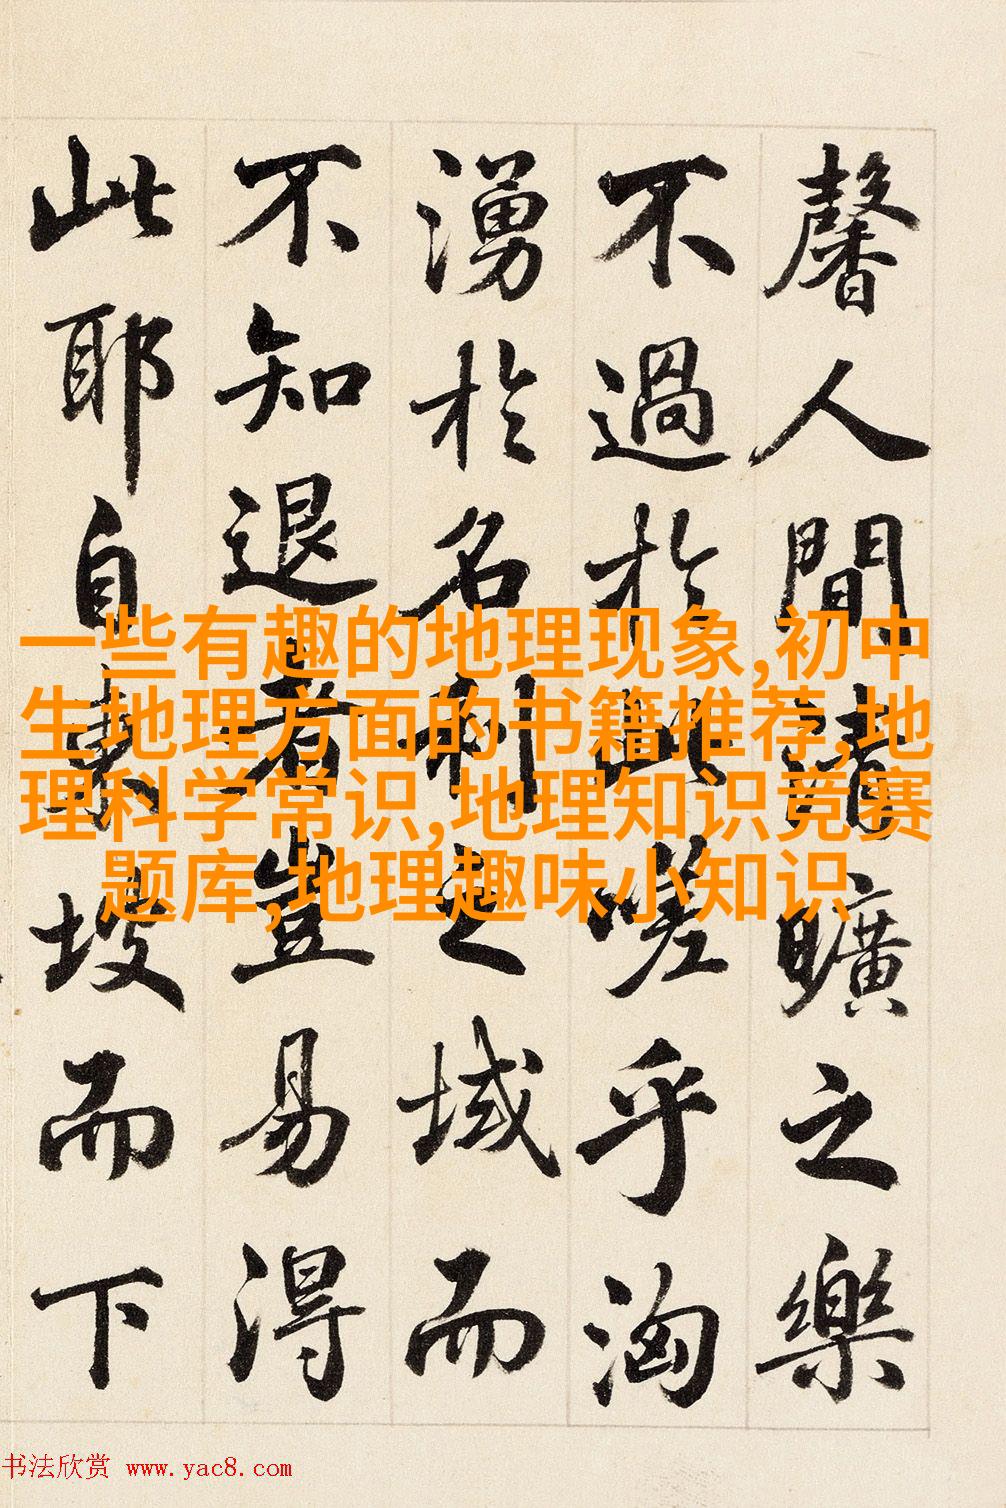 馨人間清曠之樂
不過於此嗟乎洶
湧於名利之域而
不知退者豈易得
此耶自東坡而下
一些有趣的地理现象,初中
生地理方面的书籍推荐,地
理科学常识,地理知识竞赛
题库,地理趣味小知识
书法欣赏 www.yac8.com